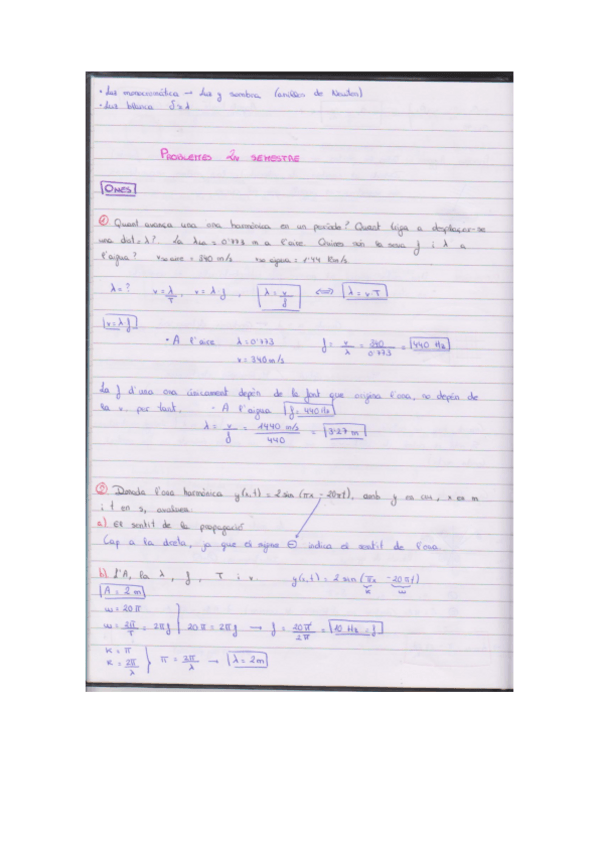 • Luz monocromática → Luz y sombra (anillos de Newton)
• Luz blanca δ=λ
PROBLEMES 2N SEMESTRE
ONES
① Quant avança una ona harmònica en un període? Quant triga a desplaçar-se
una dist = λ? La λ = 0'773 m a l'aire. Quines són la seva f i λ a
l'aigua? v aire = 340 m/s v aigua = 1'44 Km/s
λ = ? v = λ/T, v = λ f, λ = v/f ⟺ λ = v T
v = λ f
• A l'aire λ = 0'773 f = v/λ = 340/0'773 = 440 Hz
v = 340 m/s
La f d'una ona únicament depèn de la font que origina l'ona, no depèn de
la v. per tant, - A l'aigua f = 440 Hz
λ = v/f = 1440 m/s / 440 = 3'27 m
② Donada l'ona harmònica y(x,t) = 2 sin (πx - 20πt), amb y en cm, x en m
i t en s, avalueu
a) El sentit de la propagació
Cap a la dreta, ja que el signe ⊖ indica el sentit de l'ona.
b) L'A, la λ, f, T i v. y(x,t) = 2 sin (πx - 20πt)
K w
A = 2 m
w = 20π
w = 2π/T = 2πf } 20π = 2πf → f = 20π/2π = 10 Hz = f
K = π
K = 2π/λ } π = 2π/λ → λ = 2m